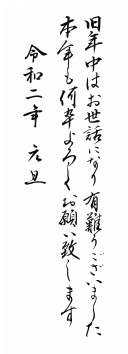 旧年中はお世話になり有難うございました
本年も何卒よろしくお願い致します
令和二年 元旦